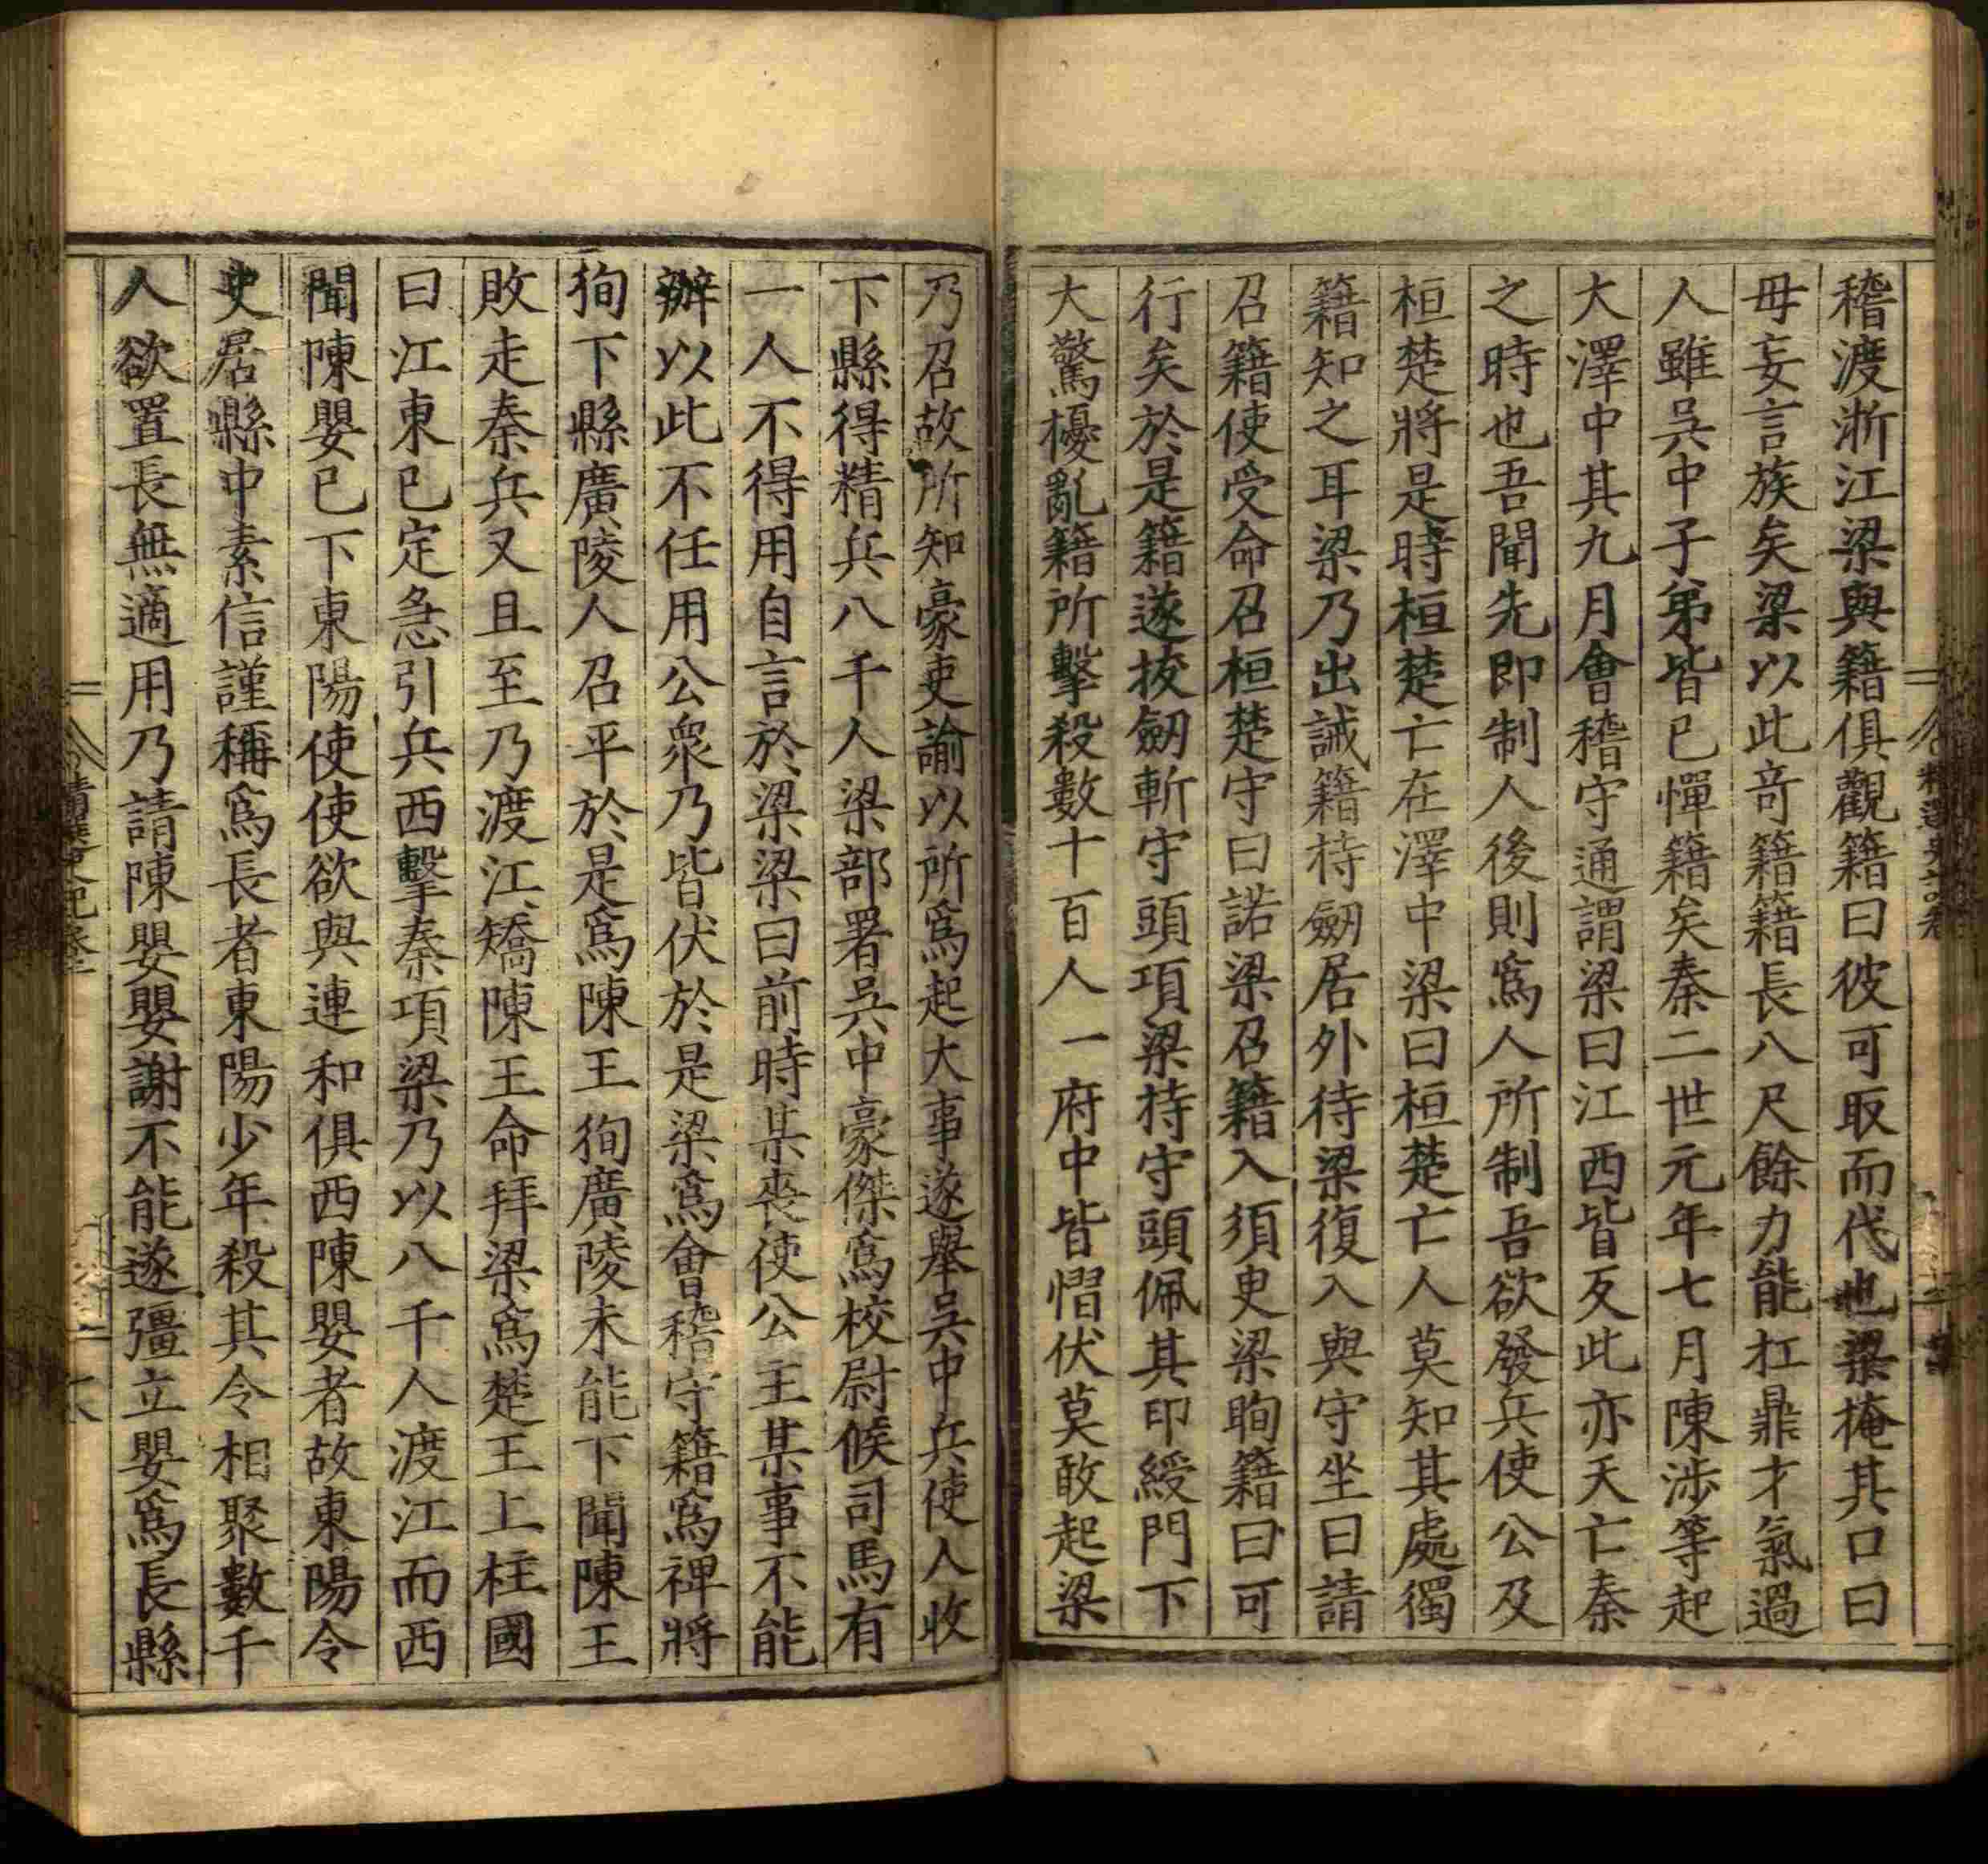 稽渡浙江梁與籍俱觀籍曰彼可取而代也梁掩其口曰
毋妄言族矣梁以此奇籍籍長八尺餘力能杠鼎才氣過
人雖吳中子弟皆已憚籍矣秦二世元年七月陳涉等起
大澤中其九月會稽守通謂梁曰江西皆反此亦天亡秦
之時也吾聞先即制人後則爲人所制吾欲發兵使公及
桓楚將是時桓楚亡在澤中梁曰桓楚亡人莫知其處獨
籍知之耳梁乃出誡籍持劒居外待梁復入與守坐曰請
召籍使受命召桓楚守曰諾梁召籍入須臾梁眴籍曰可
行矣於是籍遂拔劒斬守頭項梁持守頭佩其印綬門下
大驚擾亂籍所擊殺數十百人一府中皆慴伏莫敢起梁
乃召故所知豪吏諭以所爲起大事遂舉吳中兵使人收
下縣得精兵八千人梁部署吳中豪傑爲校尉候司馬有
一人不得用自言於梁梁曰前時某喪使公主某事不能
辦以此不任用公衆乃皆伏於是梁爲會稽守籍爲裨將
狥下縣廣陵人召平於是爲陳王狥廣陵未能下聞陳王
敗走秦兵又且至乃渡江矯陳王命拜梁爲楚王上柱國
曰江東已定急引兵西擊秦項梁乃以八千人渡江而西
聞陳嬰已下東陽使使欲與連和俱西陳嬰者故東陽令
史居縣中素信謹稱爲長者東陽少年殺其令相聚數千
人欲置長無適用乃請陳嬰嬰謝不能遂彊立嬰爲長縣